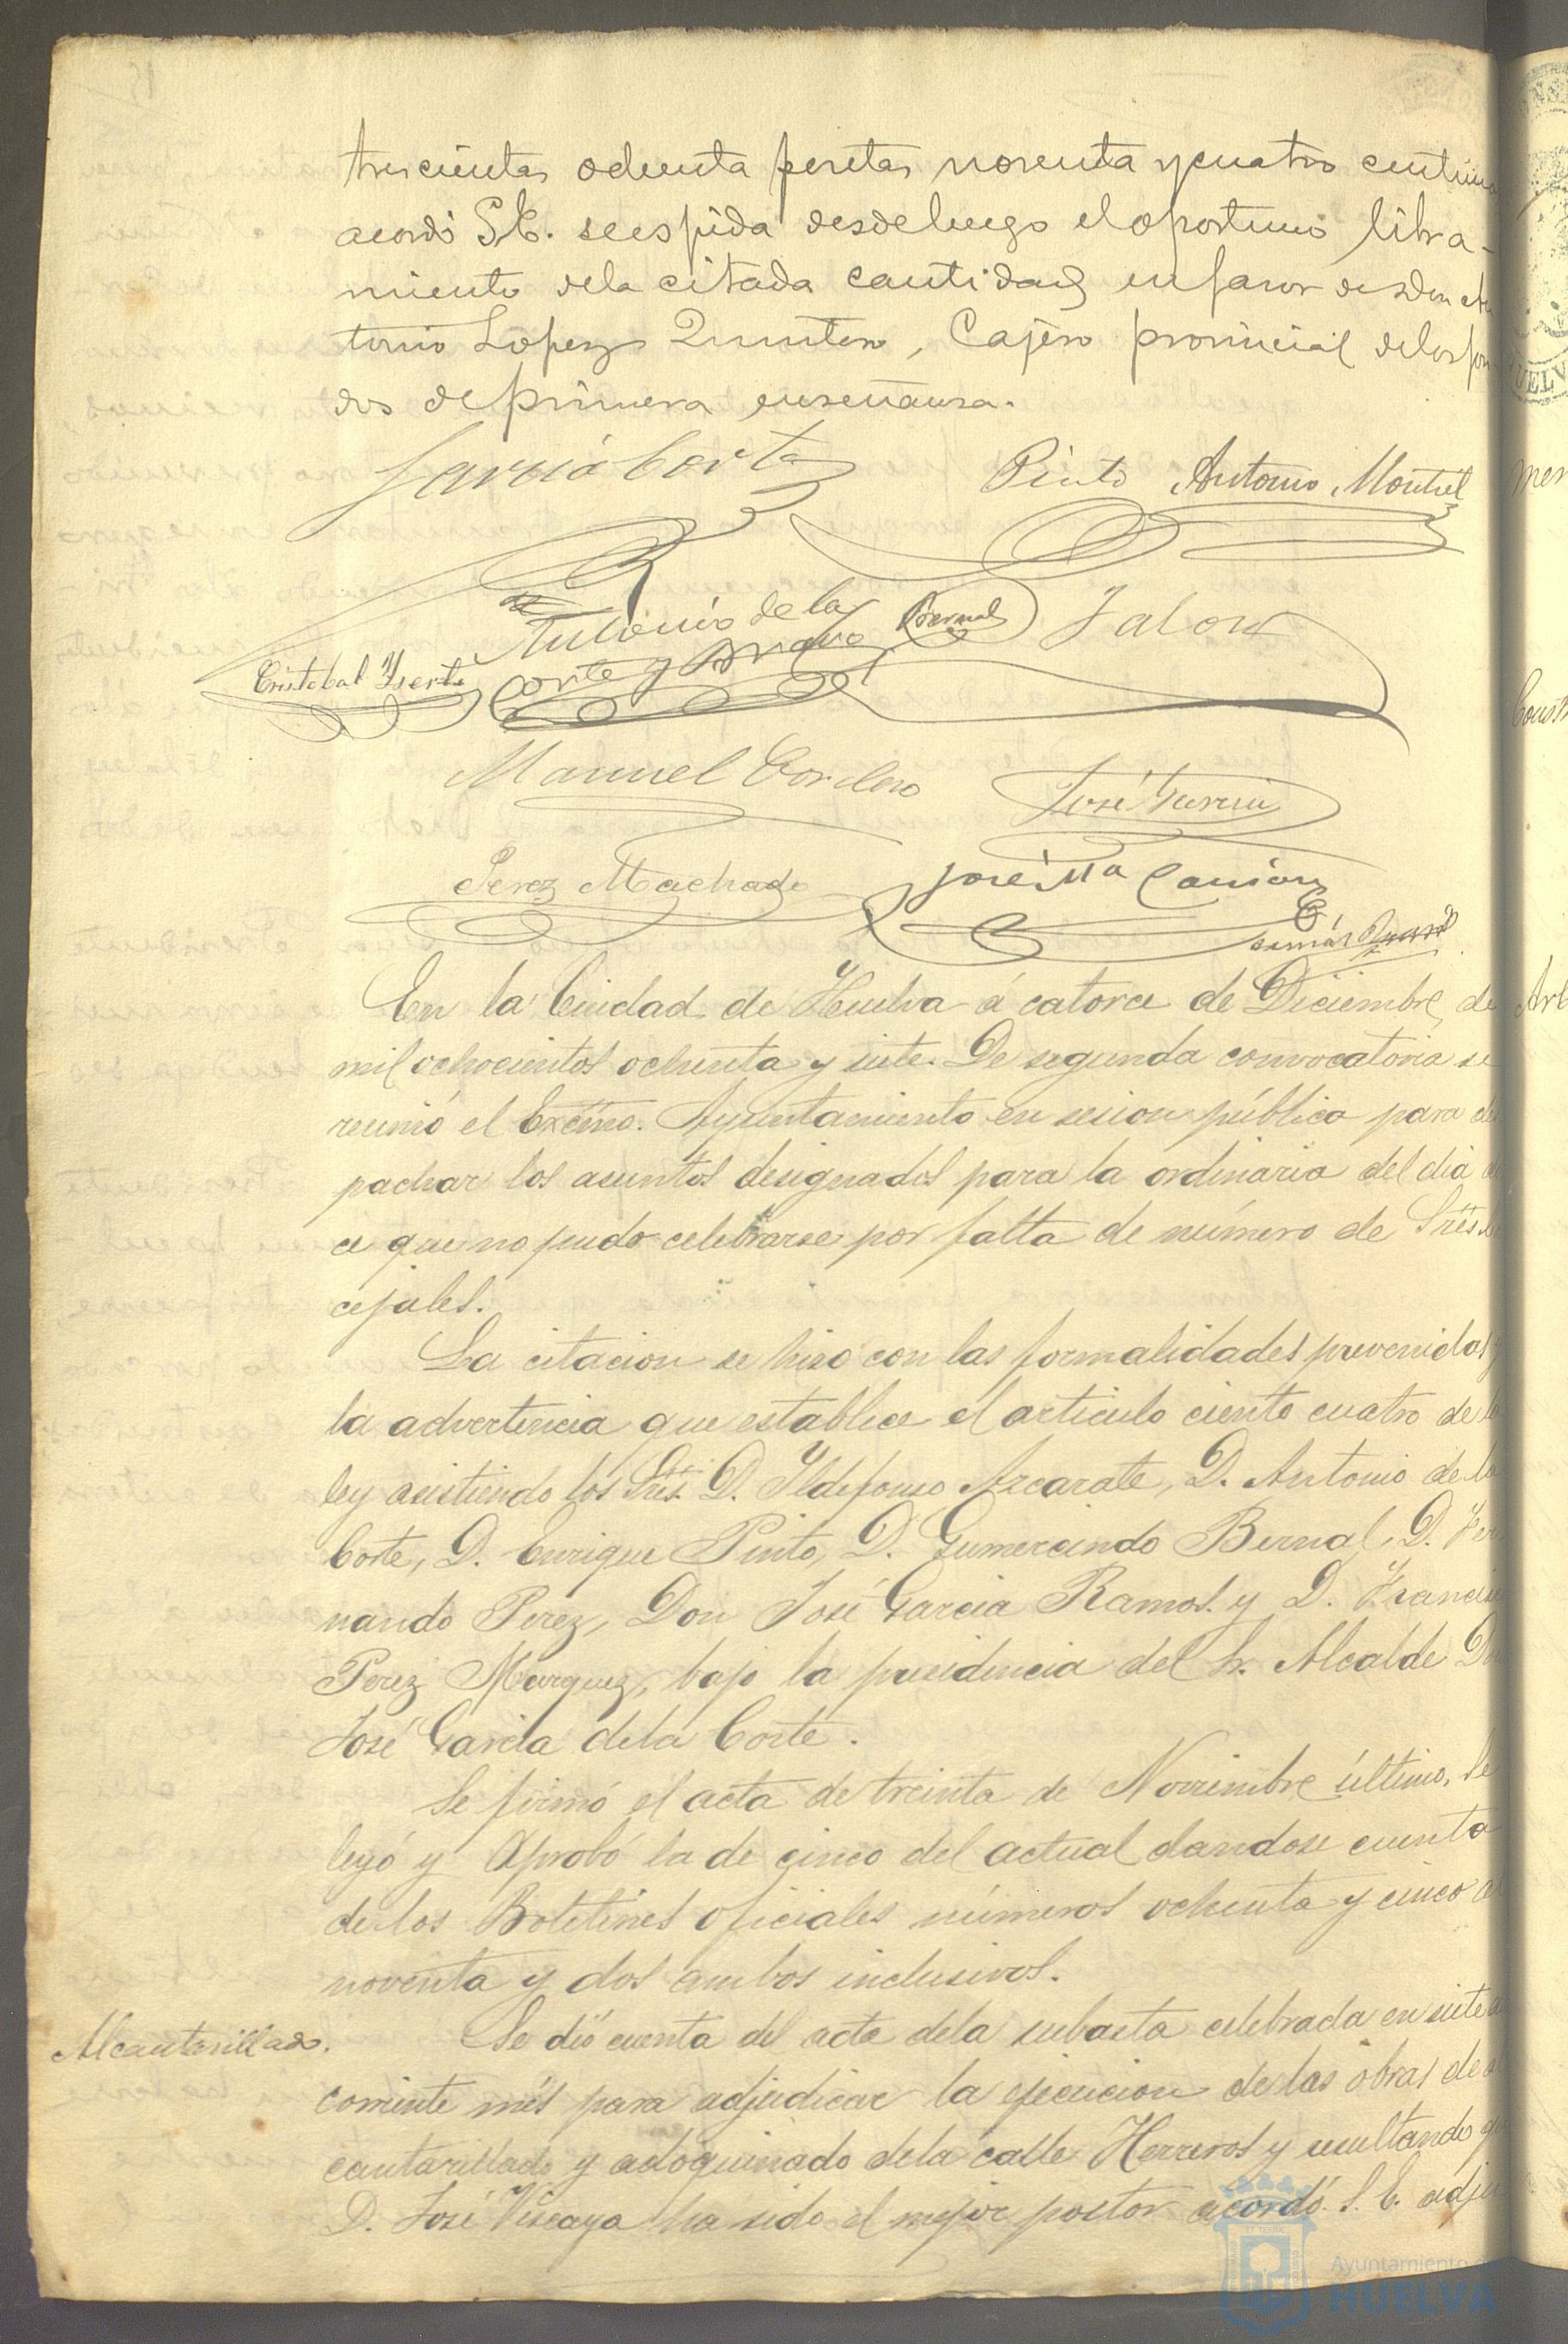 trescientas ochenta pesetas noventa y cuatro centimo
acordó S.E. se espida desde luego el oportuno libra-
miento dela citada cantidad en favor de Don An
tonio Lopez Quintero, Cajero provincial delos fon
dos de primera enseñanza.
Garcia Corte
Pinto Antonio Montiel
Antonio de la Bernal Jalon
Cristobal Yserte Corte y Bravo
Manuel Cordero José Garcia
Perez Machado José Mª
En la Ciudad de Huelva á catorce de Diciembre de
mil ochocientos ochenta y siete. De segunda convocatoria se
reunió el Excmo. Ayuntamiento en sesion pública para des
pachar los asuntos designados para la ordinaria del dia
ce que no pudo celebrarse por falta de número de Sres
cejales.
La citacion se hizo con las formalidades prevenidas y
la advertencia que establece el articulo ciento cuatro de la
ley asistiendo los Sres. D. Yldefonso Azcarate, D. Antonio de la
Corte, D. Enrique Pinto, D. Gumercindo Bernal, D. Fer
nando Perez, Don José Garcia Ramos y D. Francisc
Perez Marquez, bajo la presidencia del Sr. Alcalde Don
José Garcia dela Corte.
Se firmó el acta de treinta de Noviembre último, se
leyó y aprobó la de cinco del actual dandose cuenta
de los Boletines oficiales números ochenta y cinco al
noventa y dos ambos inclusives.
Alcantarillado.
Se dió cuenta del acta dela subasta celebrada en siete
corriente mes para adjudicar la ejecucion de las obras de al
cantarillado y adoquinado dela calle Herreros y resultando que
D. José Viscaya ha sido el mejor postor acordó S. E. adju
Ayuntamiento de
HUELVA